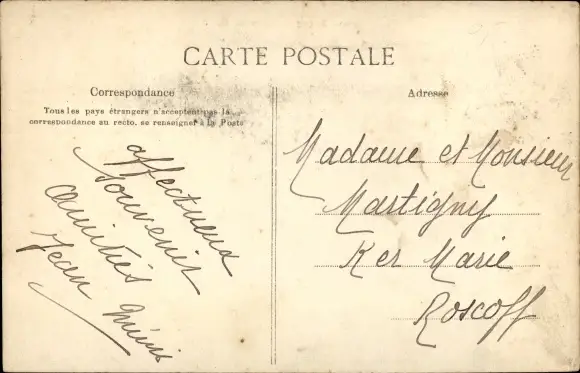 CARTE POSTALE
Correspondance
Tous les pays étrangers n'acceptent pas la
correspondance au recto. se renseigner à la Poste
affectueux
souvenir
amitiés
Jean
Adresse
Madame et Monsieur
Martigny
Ker Marie
Roscoff